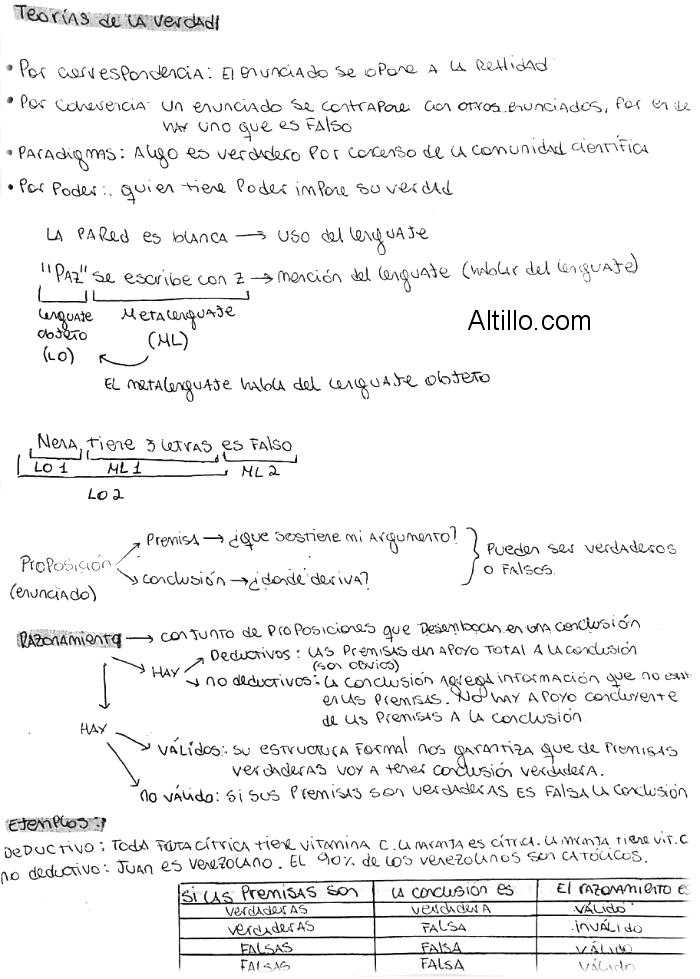 Teorías de la verdad
• Por correspondencia: El enunciado se opone a la realidad
• Por coherencia: un enunciado se contrapone con otros enunciados, por ende
hay uno que es falso
• Paradigmas: Algo es verdadero por concenso de la comunidad científica
• Por Poder: quien tiene Poder impone su verdad
La pared es blanca → uso del lenguaje
"Paz" se escribe con z → mención del lenguaje (hablar del lenguaje)
lenguaje objeto (LO)
Metalenguaje (ML)
Altillo.com
El metalenguaje habla del lenguaje objeto
Nena tiene 3 letras es falso
LO 1 ML 1 ML 2
LO 2
Proposición (enunciado)
Premisa → ¿que sostiene mi argumento?
conclusión → ¿donde deriva?
Pueden ser verdaderos
o falsos.
Razonamiento → conjunto de proposiciones que desembocan en una conclusión
HAY
Deductivos: las premisas dan apoyo total a la conclusión
(son obvios)
no deductivos: la conclusión agrega información que no est
en las premisas. No hay apoyo concluyente
de las premisas a la conclusión
HAY
válidos: su estructura formal nos garantiza que de premisas
verdaderas voy a tener conclusión verdadera.
no válido: si sus premisas son verdaderas es falsa la conclusión
Ejemplos:
Deductivo: Toda fruta cítrica tiene vitamina C. La naranja es cítrica. La naranja tiene vit. C
no deductivo: Juan es venezolano. El 90% de los venezolanos son católicos.
si las premisas son | la conclusión es | El razonamiento e
verdaderas | verdadera | válido
verdaderas | falsa | inválido
falsas | falsa | válido
falsas | falsa | válido